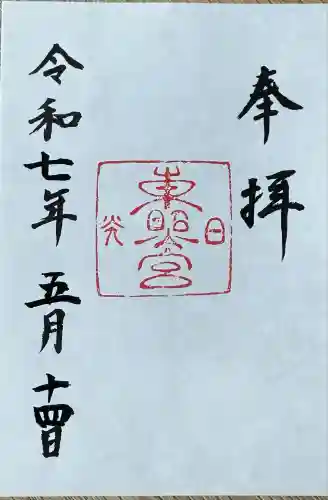 奉拝
日光
東照宮
令和七年五月十四日